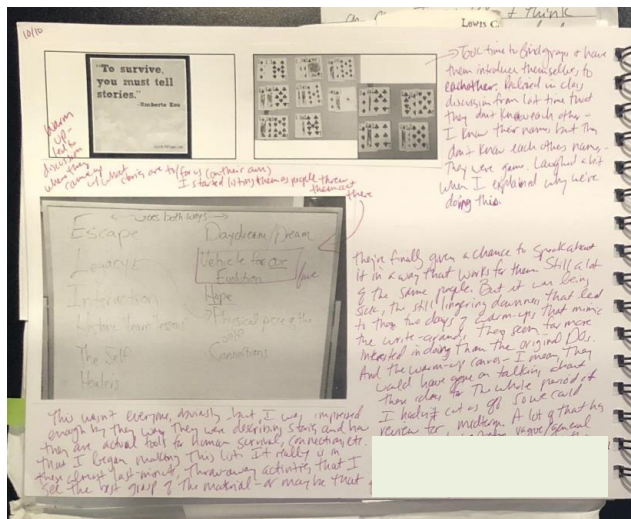 10/10
Lewis C
"To survive,
you must tell
stories."
-Umberto Eco
Warm
up-
led to
discussion
where they
came up
w/ what stories are to/for us (on their own)
I started listing them as people threw
them out
there
→Took time to find groups & have
them introduce themselves to
eachother. Realized in class
discussion from last time that
they don't know each other-
I know their names but they
don't know each others names-
They were game. Laughed a lot
when I explained why we're
doing this.
← goes both ways →
Escape
Daydream/Dream
Legacy
Vehicle for our
Evolution
Interaction
Hope
History "our" "lessons"
Physical piece of the
The Self
Connections
They're finally given a chance to speak about
it in a way that works for them. Still a lot
of the same people. But it was being
sick, the still lingering that led
to these two days of warm-ups that mimic
the write-arounds. They seem far more
interested in doing than the original DQs.
And the warm-up convos- I mean, They
would have gone on talking about
these ideas for the whole period if
I hadn't cut us off so we could
review for midterm. A lot of that was
vague/general
This wasn't everyone, obviously, but I was impressed
enough by the way they were describing stories and how
they are actual tools to human survival, connections, etc.
that I began making this list. It really is in
these almost last-minute, throw-away activities that I
see the best grasp of the material - or maybe that